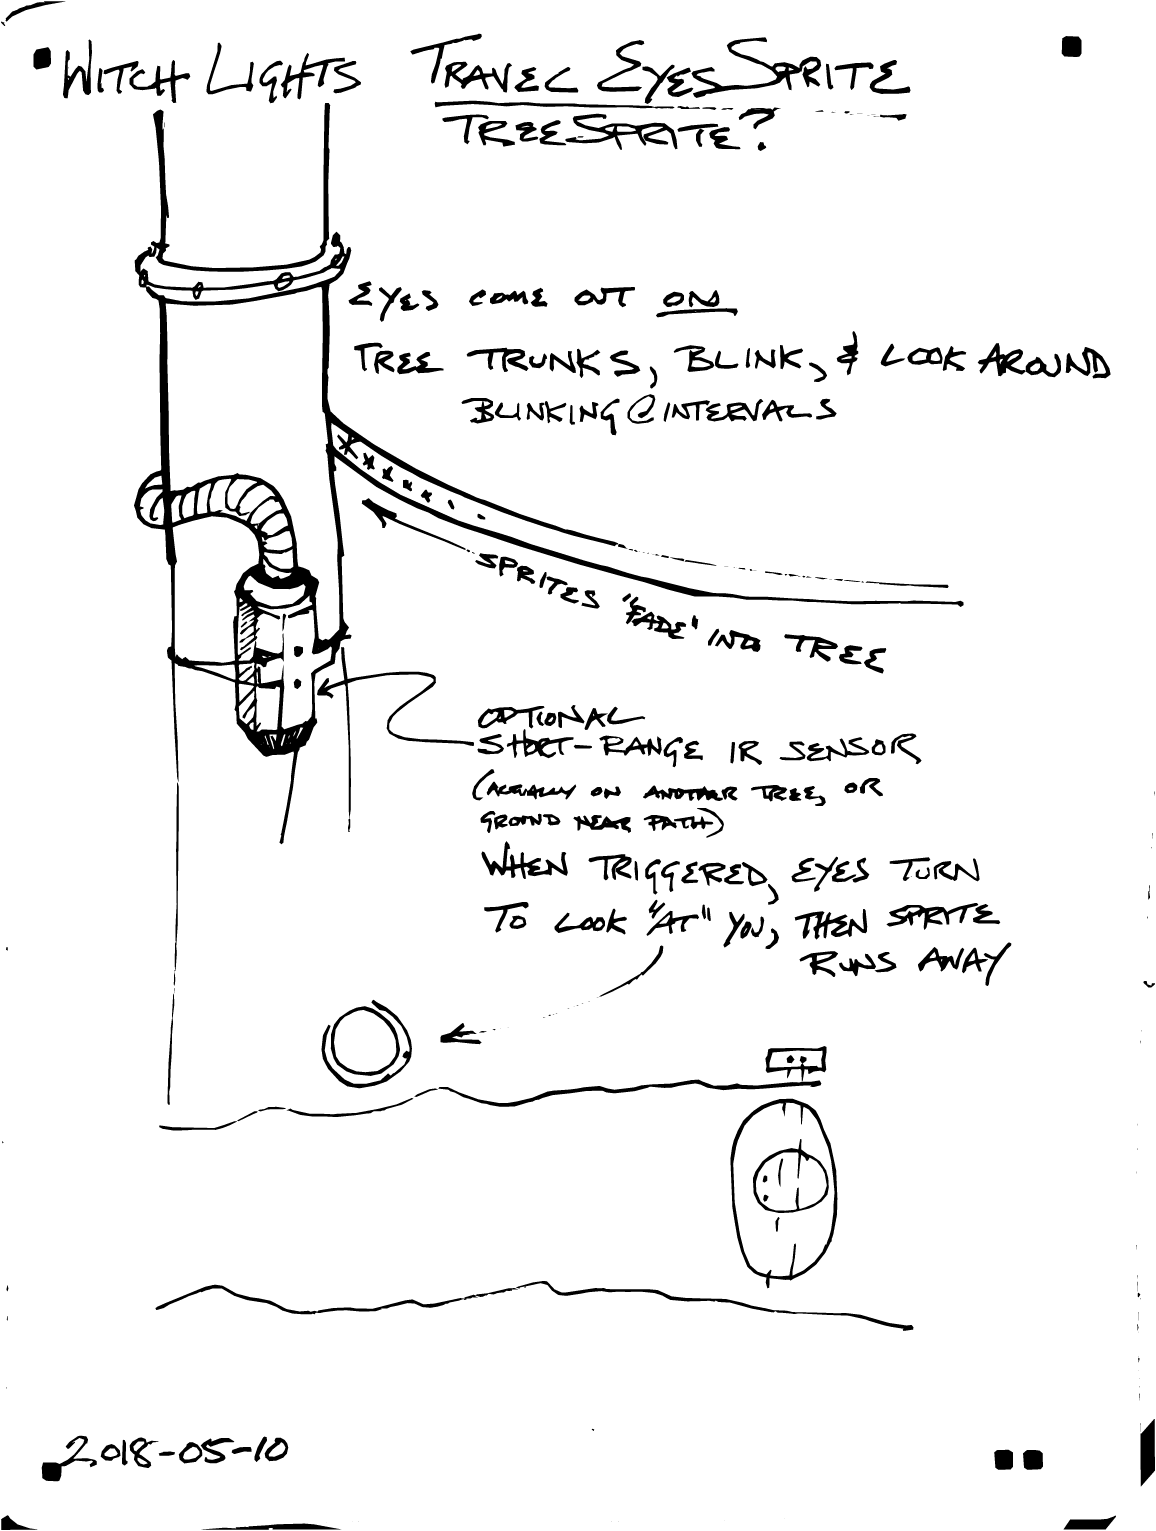 WITCH LIGHTS TRAVEL EYESSPRITE
TREESPRITE?
EYES COME OUT ON
TREE TRUNKS, BLINK, & LOOK AROUND
BLINKING @ INTERVALS
SPRITES "FADE" INTO TREE
OPTIONAL
SHORT-RANGE IR SENSOR
(ACTUALLY ON ANOTHER TREE, OR
GROUND NEAR PATH)
WHEN TRIGGERED, EYES TURN
TO LOOK "AT" YOU, THEN SPRITE
RUNS AWAY
2018-05-10